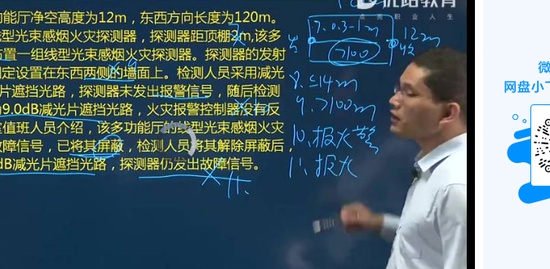 功能厅净空高度为12m，东西方向长度为120m。
线型光束感烟火灾探测器，探测器距顶棚2m,该多
布置一组线型光束感烟火灾探测器。探测器的发射
固定设置在东西两侧的墙面上。检测人员采用减光
片遮挡光路，探测器未发出报警信号，随后检测
9.0dB减光片遮挡光路，火灾报警控制器没有反
值班人员介绍，该多功能厅 型光束感烟火灾
故障信号，已将其屏蔽，检测人员将其解除屏蔽后，
dB减光片遮挡光路，探测器仍发出故障信号。
7、0.3-1m
>100
12m
8、≤14m
9、>100m
10、报火警
11、报火
11.
优路教育
职业教育
微
网盘小